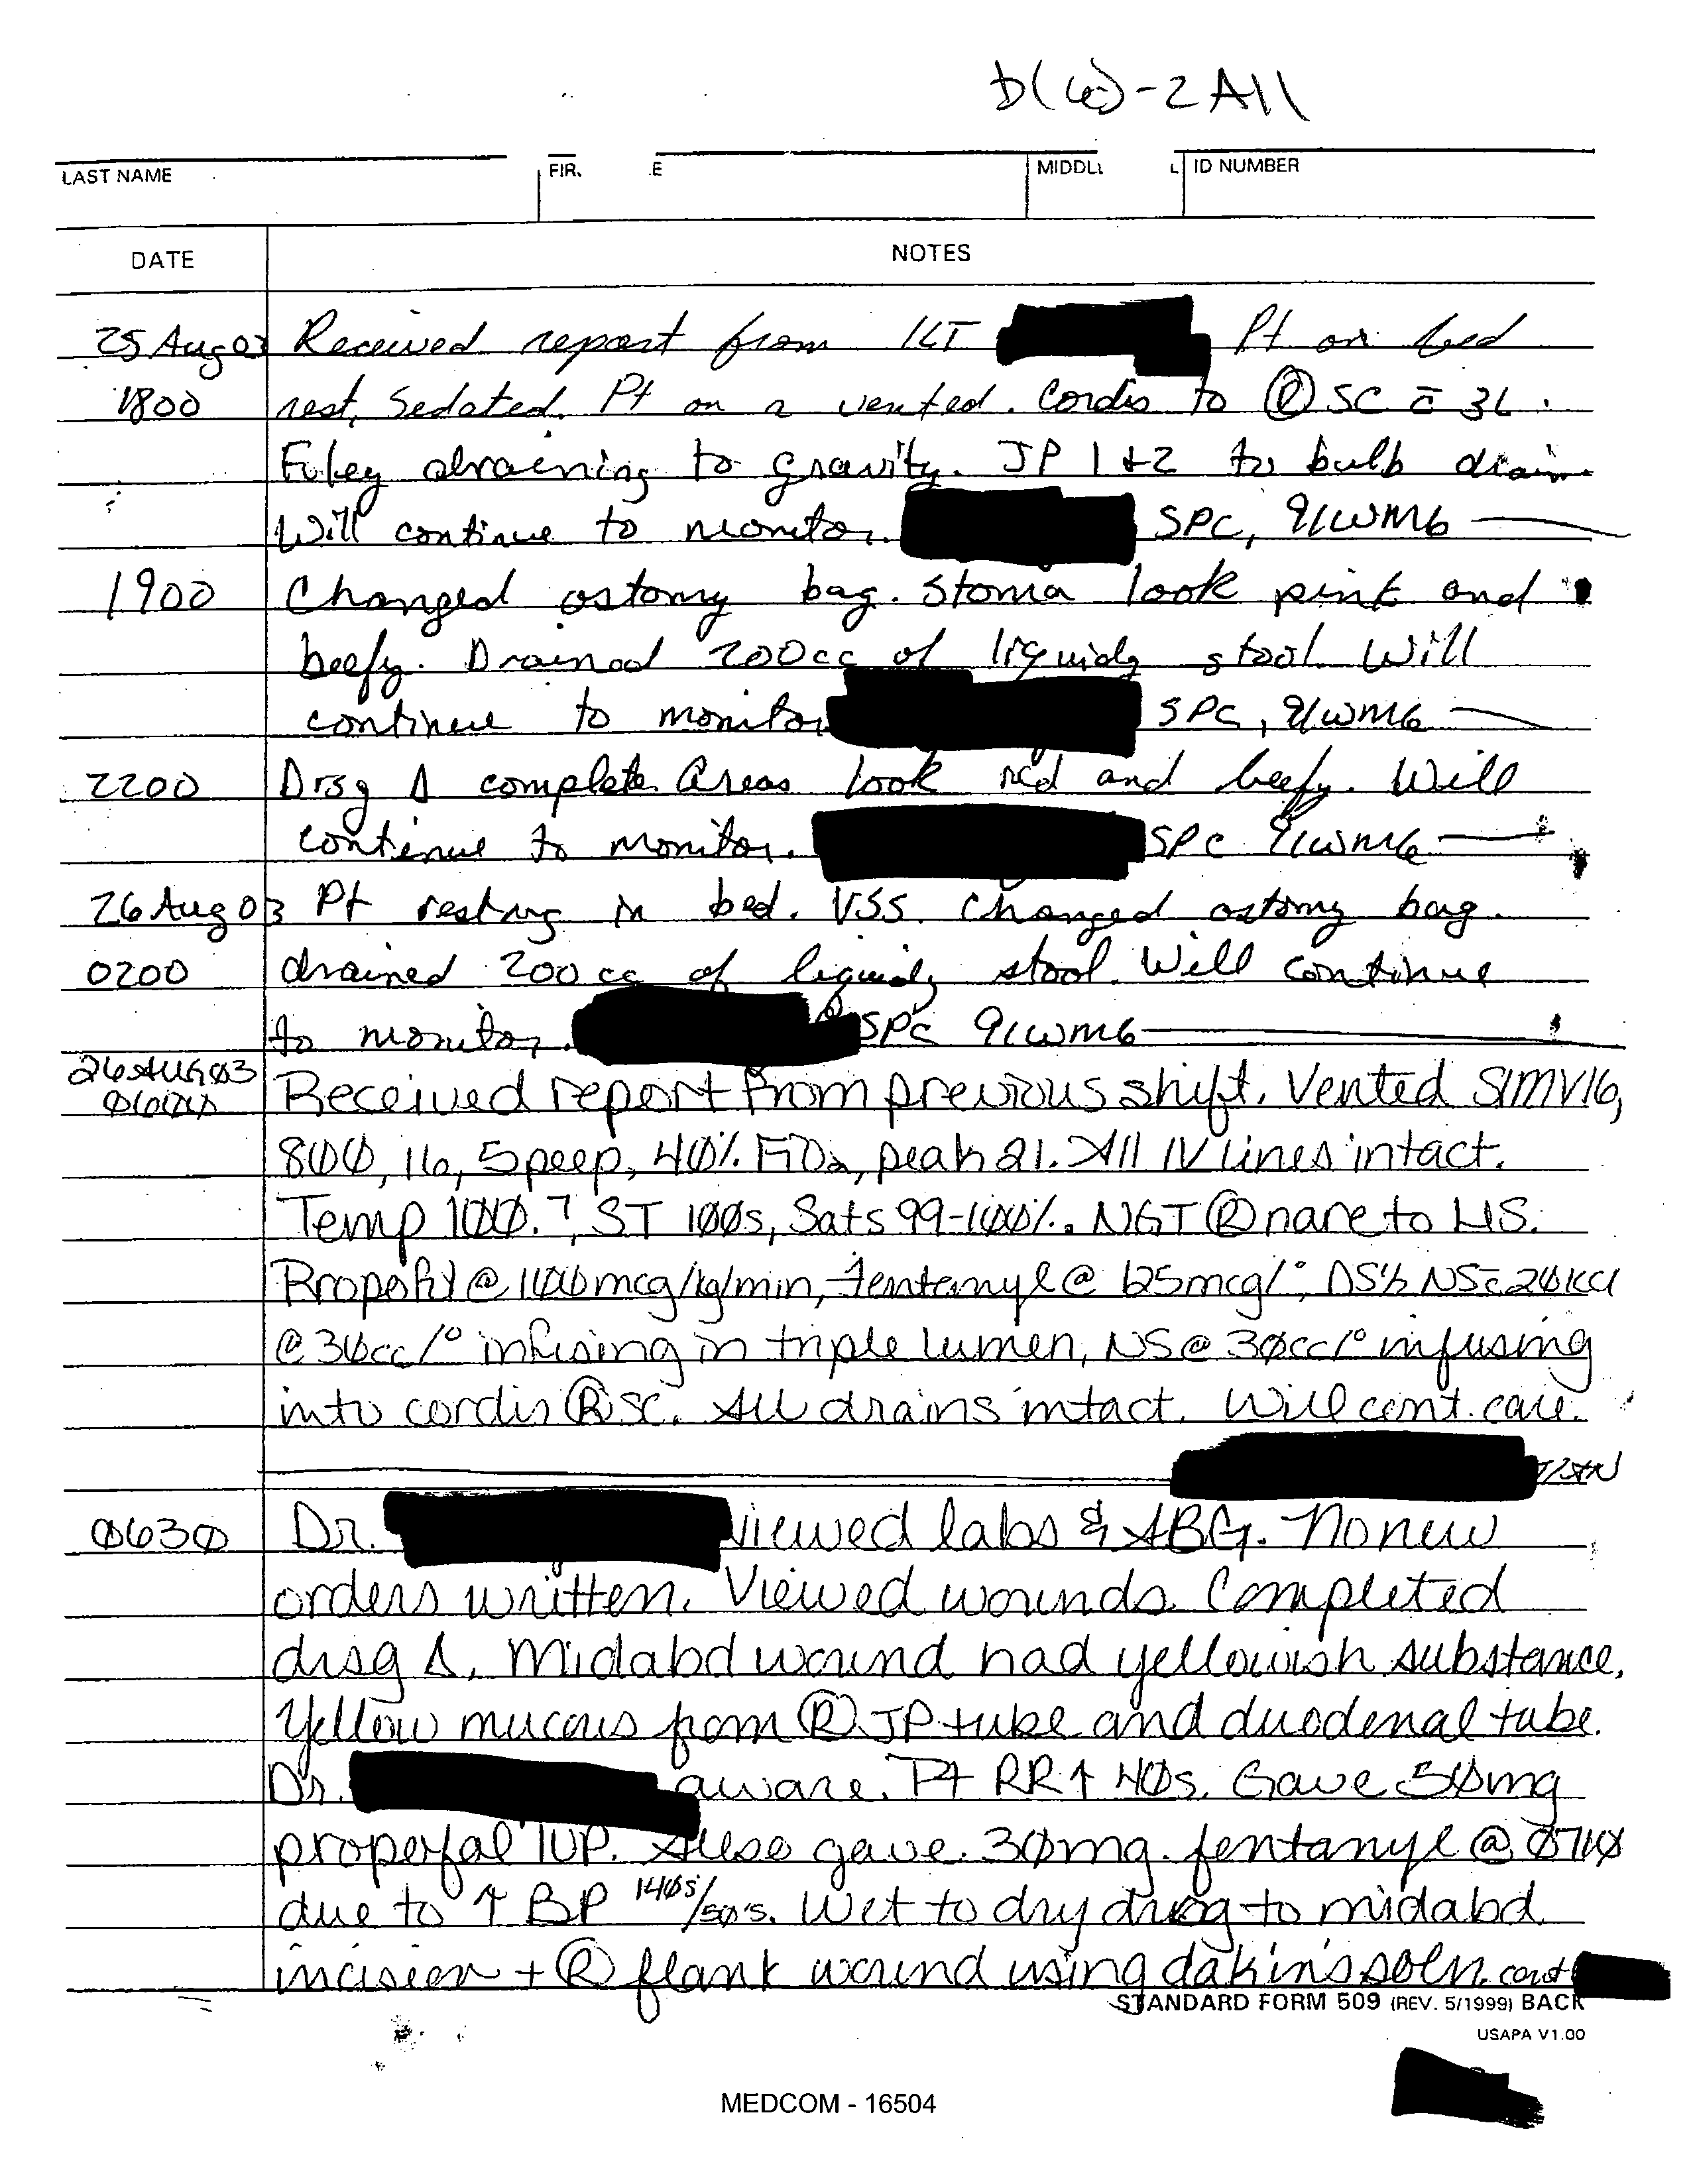 b(6)-2 All
LAST NAME FIR. E MIDDL L ID NUMBER
DATE NOTES
25 Aug 03 Received report from 1LT Pt on bed
1800 rest, sedated. Pt on a vented. Cordis to Ⓡ SC c̄ 3L.
Foley draining to gravity. JP 1+2 to bulb drain
Will continue to monitor. SPC, 91WM6
1900 Changed ostomy bag. Stoma look pink and
beefy. Drained 200cc of liquidy stool. Will
continue to monitor SPC, 91WM6
2200 Drsg Δ complete. Areas look red and beefy. Will
continue to monitor. SPC 91WM6
26 Aug 03 Pt resting in bed. VSS. Changed ostomy bag.
0200 drained 200cc of liquidy stool. Will continue
to monitor. SPC 91WM6
26AUG03 Received report from previous shift. Vented SIMV16,
0600 800, 16, 5 peep, 40% FiO₂, peak 21. All IV lines intact.
Temp 100.7, ST 100s, Sats 99-100%. NGT Ⓡ nare to LIS.
Propofyl @ mcg/kg/min, fentanyl @ 125mcg/°, D5½NS c̄ 20KCl
@ 30cc/° infusing in triple lumen, NS @ 30cc/° infusing
into cordis Ⓡ SC. All drains intact. Will cont. care.
0630 Dr. viewed labs & ABG. No new
orders written. Viewed wounds. Completed
drsg Δ. Midabd wound had yellowish substance.
Yellow mucous from Ⓡ JP tube and duodenal tube.
Dr. aware. Pt RR↑ 40s. Gave 50mg
propofal IVP. Also gave 30mg fentanyl @ 0710
due to ↑ BP 140s/50's. Wet to dry drsg to midabd
incision + Ⓡ flank wound using dakin's soln. cont
STANDARD FORM 509 (REV. 5/1999) BACK
USAPA V1.00
MEDCOM - 16504